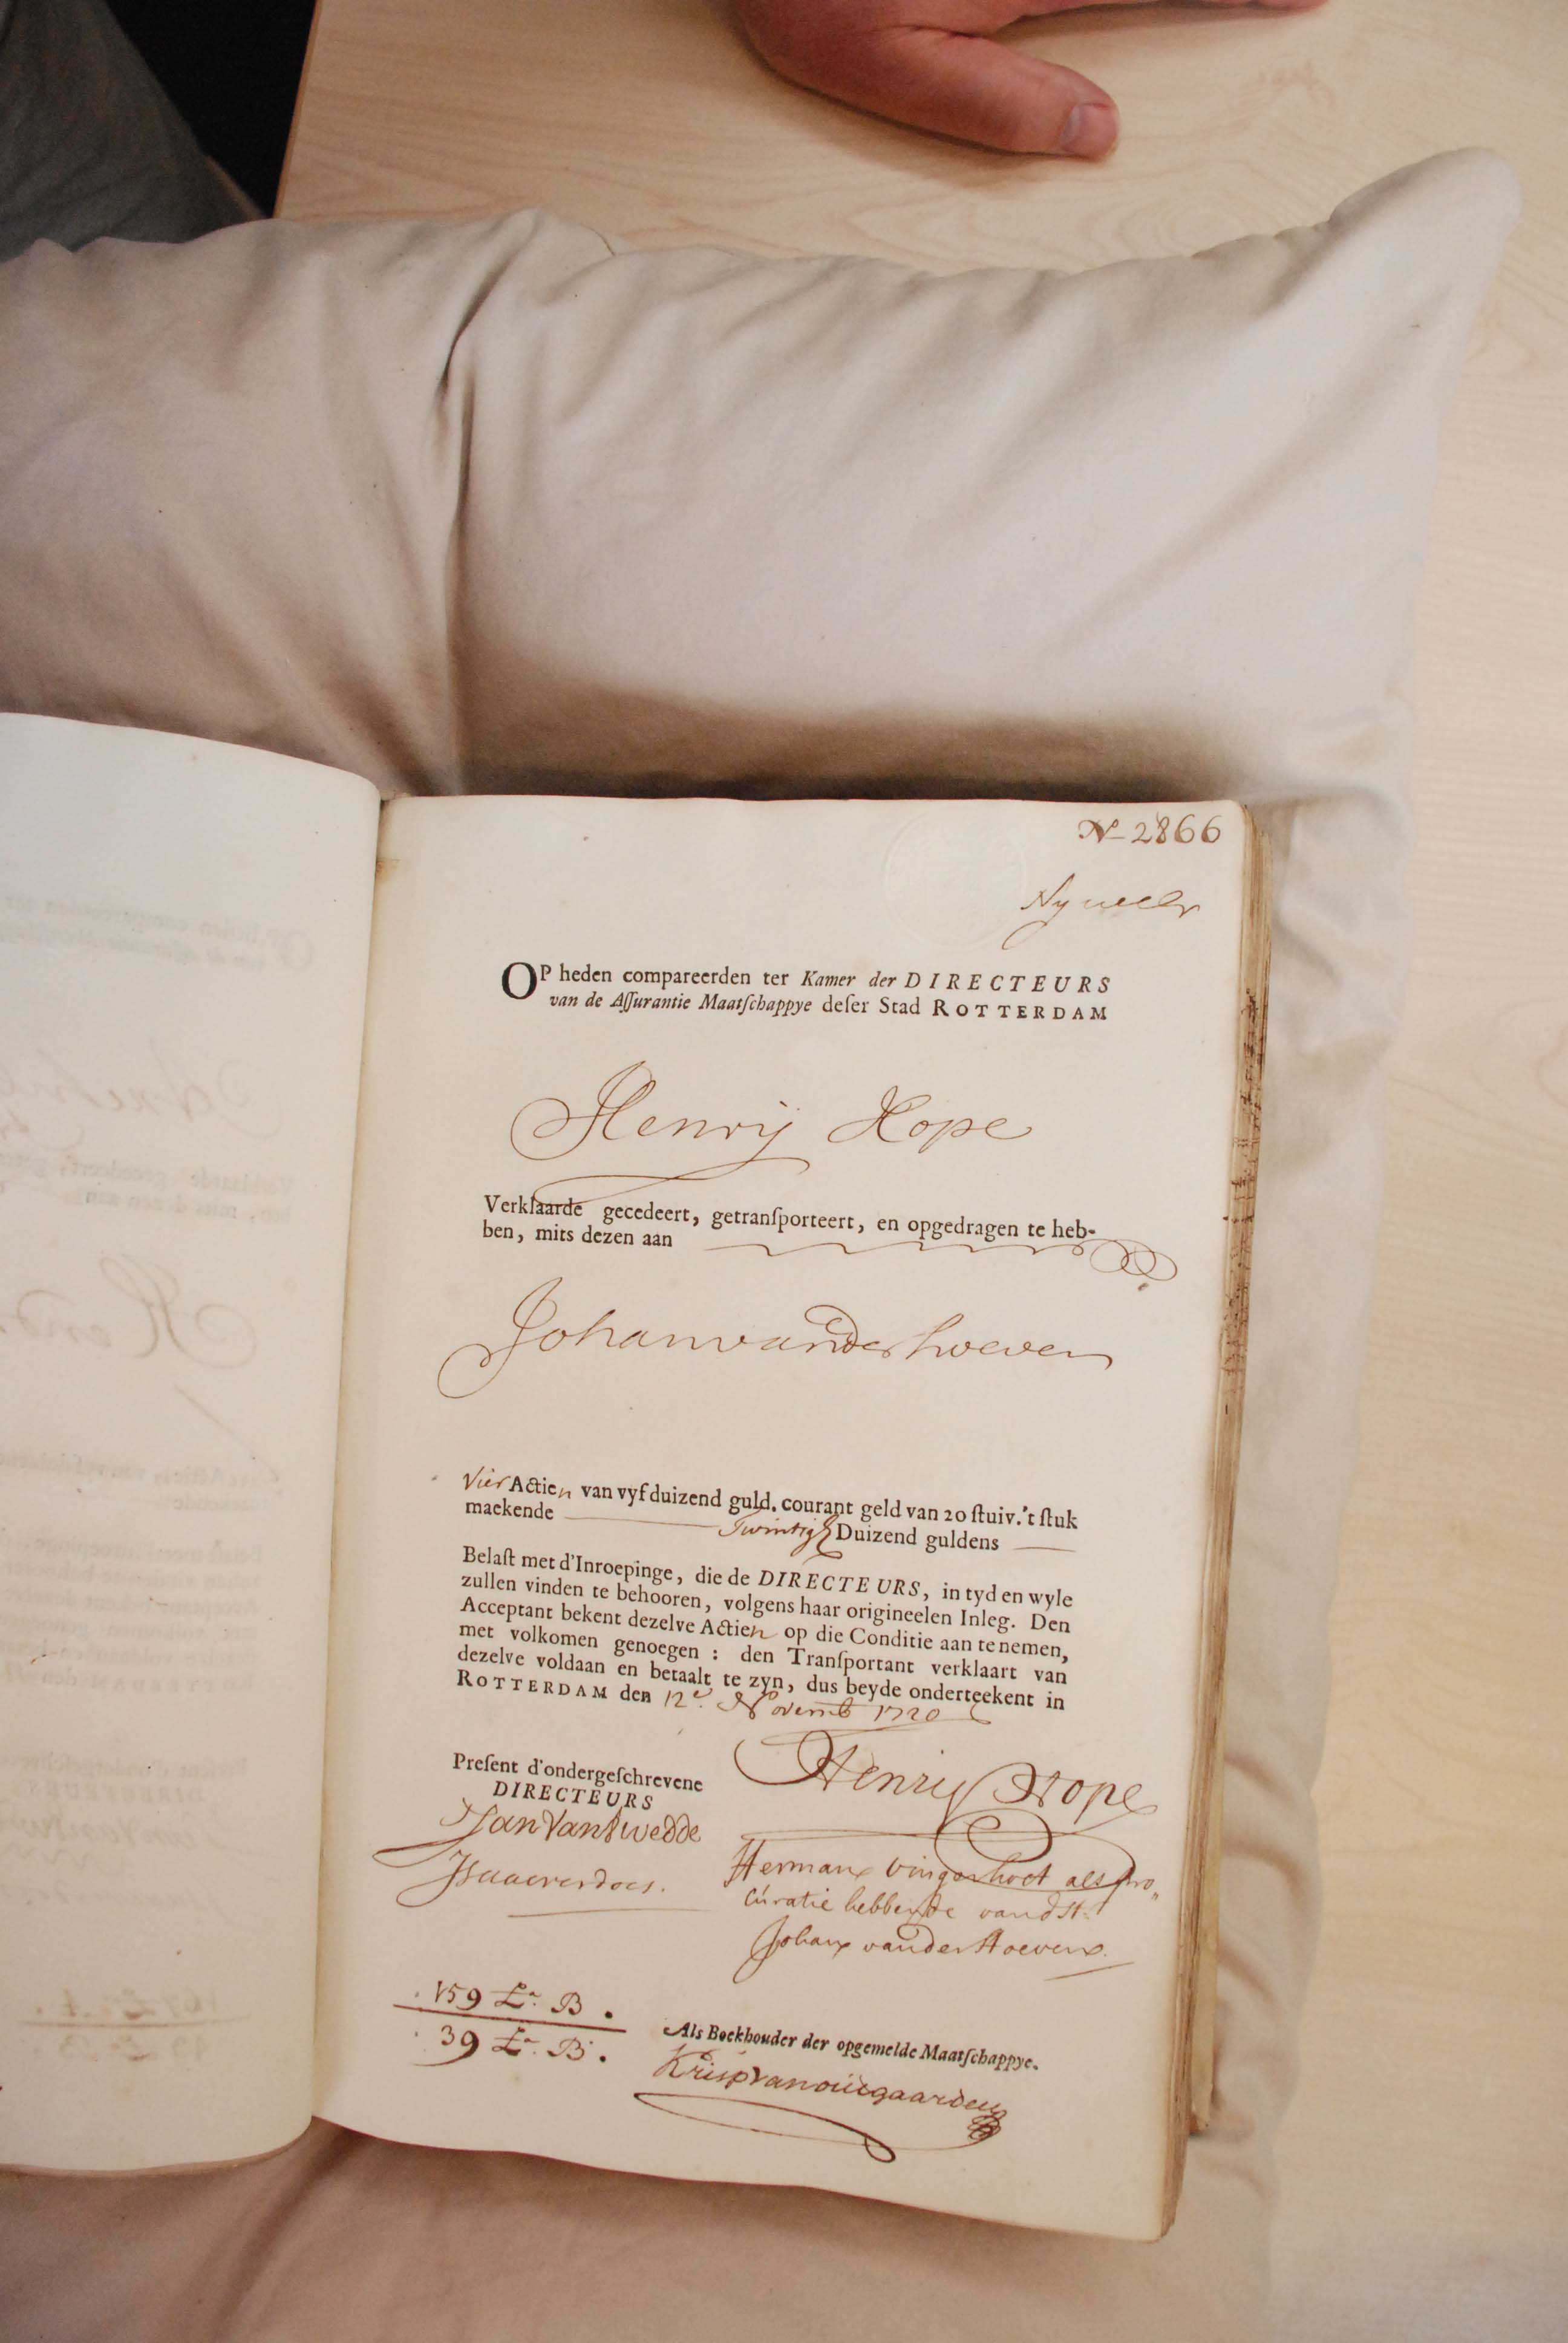 No 2866
OP heden compareerden ter Kamer der DIRECTEURS
van de Aſſurantie Maatſchappye deſer Stad ROTTERDAM
Henrij Hope
Verklaarde gecedeert, getranſporteert, en opgedragen te heb-
ben, mits dezen aan
Johan vander hoeven
Vier Actien van vyf duizend guld. courant geld van 20 ſtuiv. 't ſtuk
maekende Twintigh Duizend guldens
Belaſt met d'Inroepinge, die de DIRECTEURS, in tyd en wyle
zullen vinden te behooren, volgens haar origineelen Inleg. Den
Acceptant bekent dezelve Actien op die Conditie aan te nemen,
met volkomen genoegen : den Tranſportant verklaart van
dezelve voldaan en betaalt te zyn, dus beyde onderteekent in
ROTTERDAM den 12e Novemb 1720
Preſent d'ondergeſchrevene
DIRECTEURS
Henrij Hope
Herman Vingerhoet als pro„
curatie hebbende van dHr.
Johan vander Hoeven.
159 La. B.
39 La. B.
Als Boekhouder der opgemelde Maatſchappye.